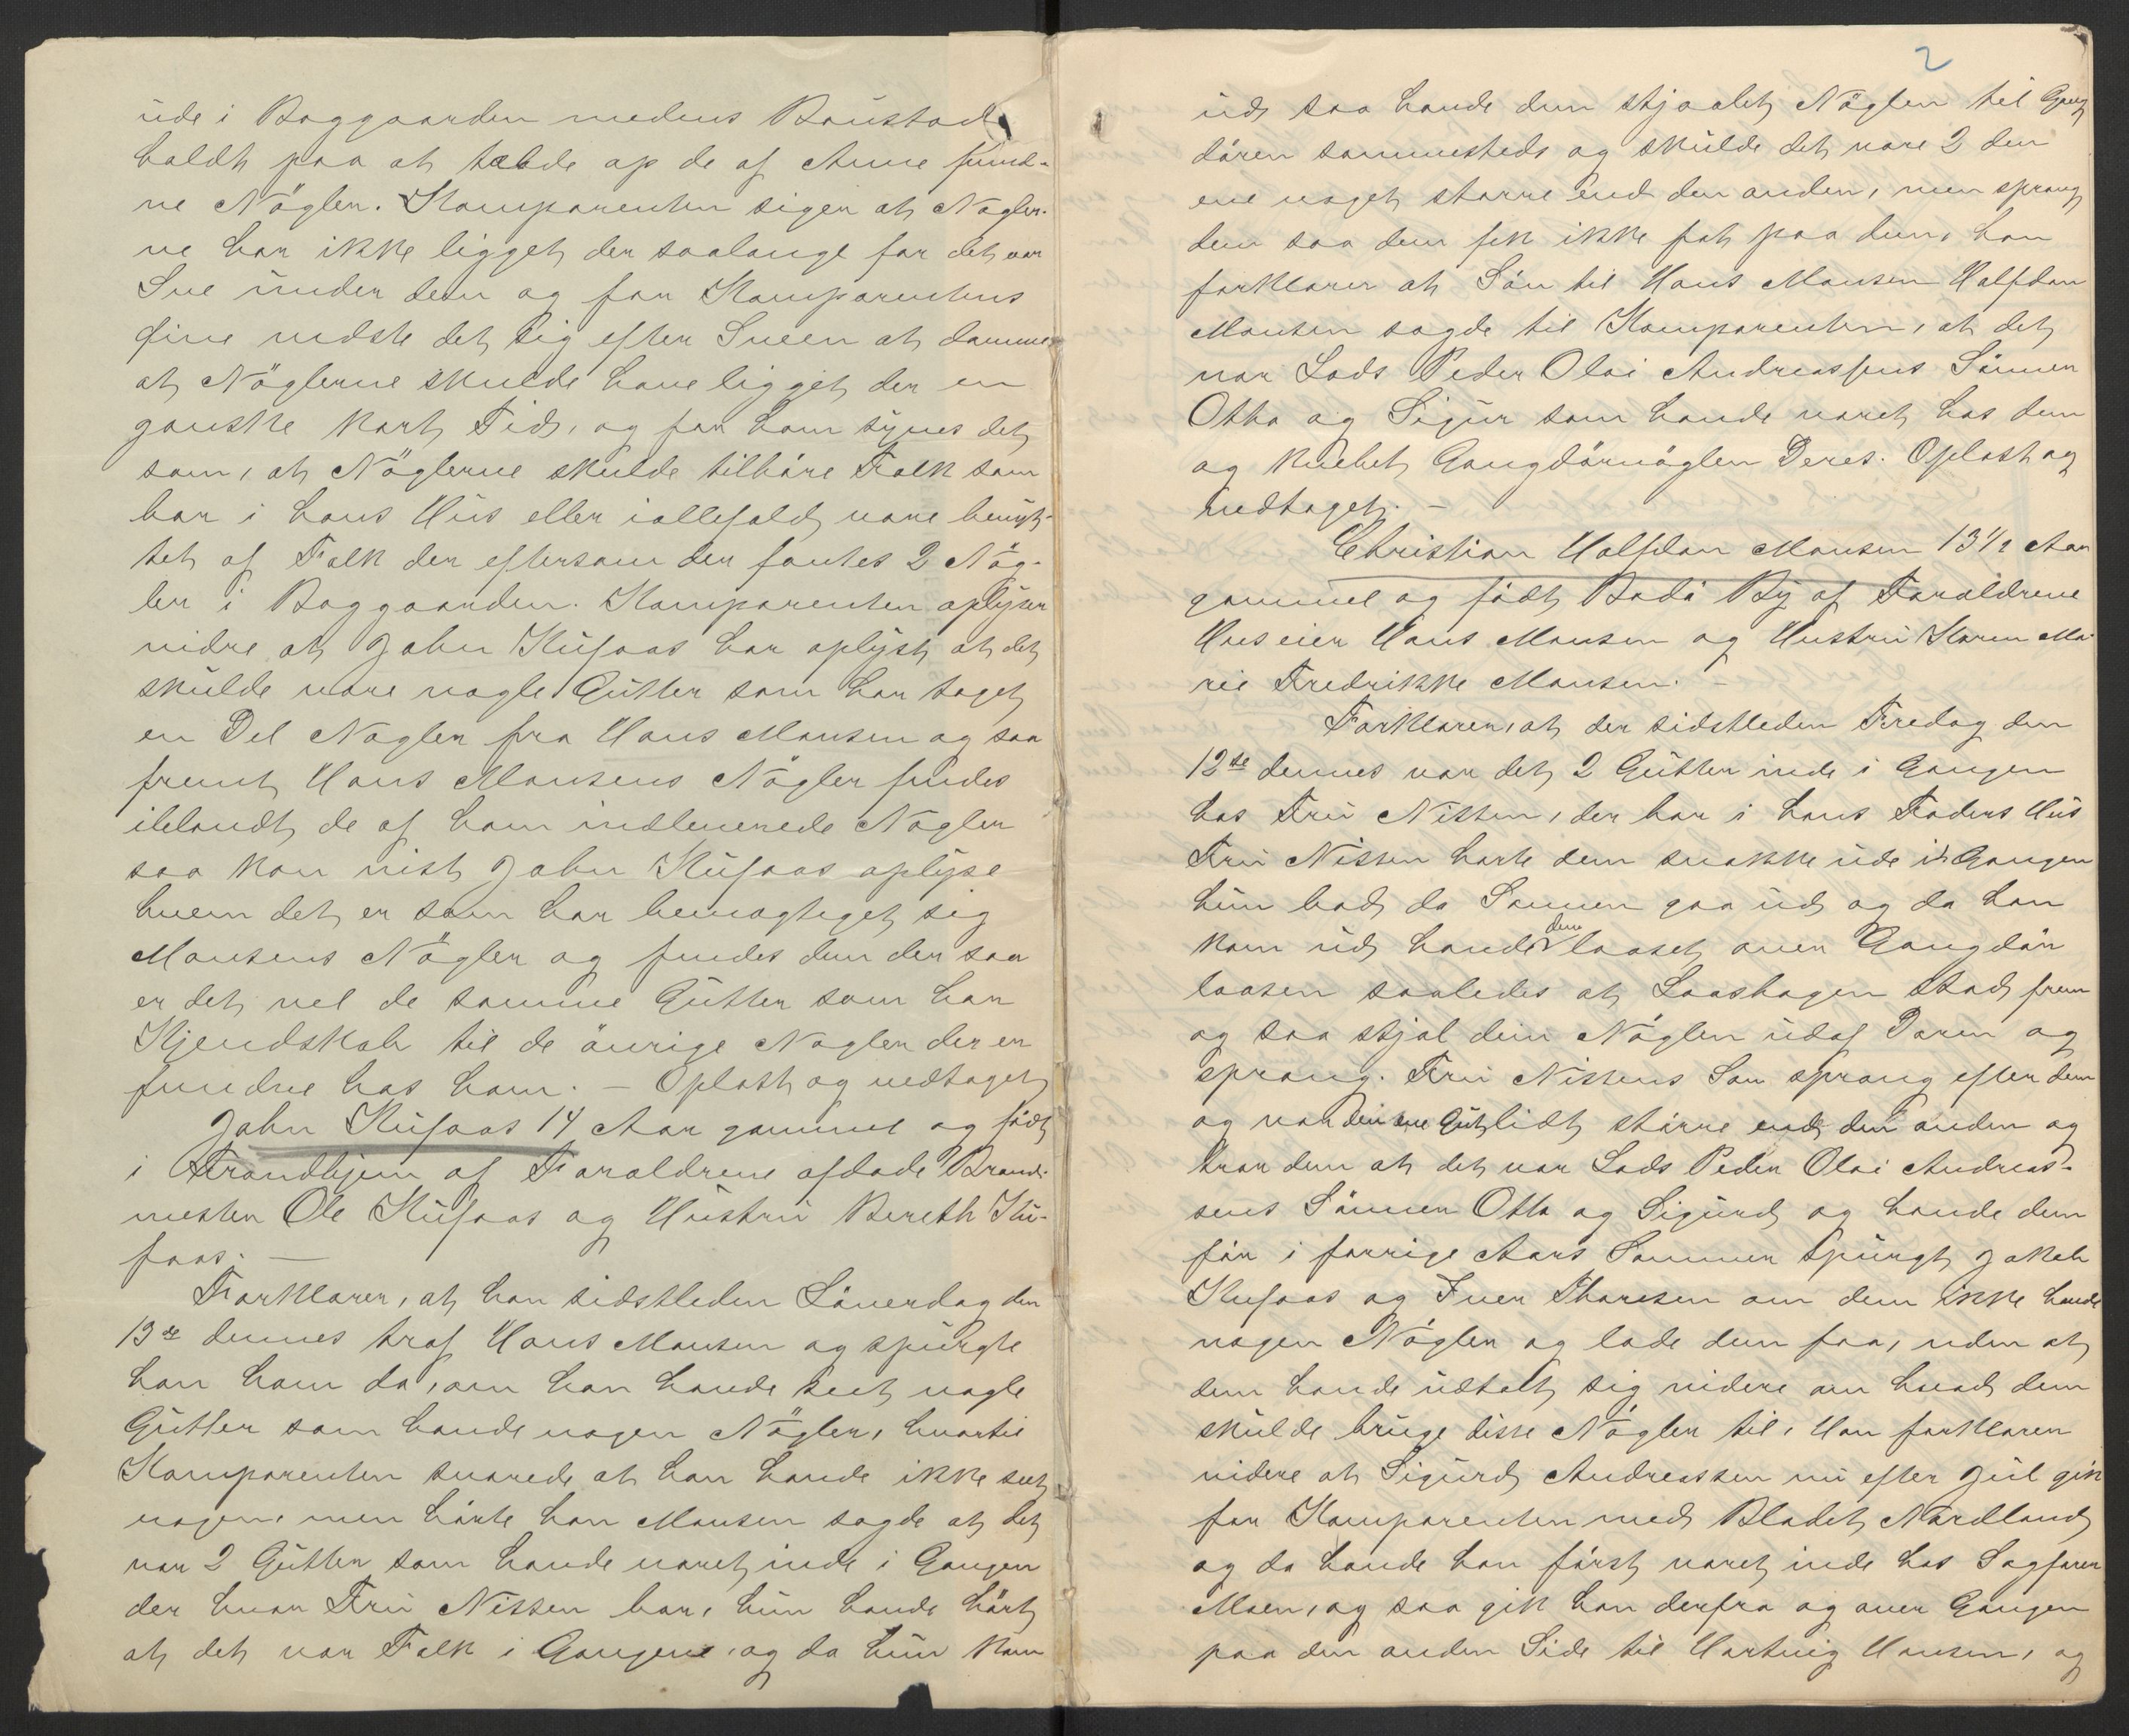 ude i Baggaarden medens Baustad
holdt paa at tælde op de af Anne fund-
ne Nøgler. Komparenten siger at Nøgler-
ne har ikke ligget der saalange for det var
Sne under dem og for Komparentens
Øine udste det sig efter Sneen at dømme
at Nøglerne skulde have ligget der en
ganske kort Tid, og for ham synes det
som, at Nøglerne skulde tilhøre Folk som
bor i hans Hus eller iallefald være benyt-
tet af Folk der eftersom der fantes 2 Nøg-
ler i Baggaarden. Komparenten oplyser
vidre at John Kufaas har oplyst at det
skulde være nogle Gutter som har taget
en Del Nøgler fra Hans Monsen og saa
fremt Hans Monsens Nøgler findes
iblandt de af ham indleverede Nøgler
saa kan vist John Kufaas oplyse
hvem det er som har bemægtiget sig
Monsens Nøgler og findes dem der saa
er det vel de samme Gutter som har
Kjendskab til de øvrige Nøgler der er
fundne hos ham. – Oplæst og vedtaget
John Kufaas 14 Aar gammel og født
i Trondhjem af Forældrene afdøde Brand-
mester Ole Kufaas og Hustru Bereth Ku-
faas. –
Forklarer, at han sidstleden Løverdag den
13de dennes traf Hans Monsen og spurgte
han ham da, om han havde seet nogle
Gutter som havde nogen Nøgler, hvortil
Komparenten svarede at han havde ikke seet
nogen, men hørte han Monsen sagde at det
var 2 Gutter som havde været inde i Gangen
der hvor Fru Nissen bor, hun havde hørt
at det var Folk i Gangene, og da hun kom
2
ud saa havde dem stjaalet Nøglen til Gang
døren sammesteds og skulde det være 2 den
ene noget større end den anden, men sprang
dem saa dem fik ikke fat paa dem, han
forklarer at Søn til Hans Monsen Halfdan
Monsen sagde til Komparenten, at det
var Lods Peder Olai Andreassens Sønner
Otto og Sigur som havde været hos dem
og knebet Gangdørnøglen Deres. Oplæst og
vedtaget. –
Christian Halfdan Monsen 13½ Aar
gammel og født Bodø By af Forældrene
Huseier Hans Monsen og Hustru Karen Ma-
rie Fredrikke Monsen. –
Forklarer, at der sidstleden Fredag den
12te dennes var det 2 Gutter inde i Gangen
hos Fru Nissen, der bor i hans Faders Hus
Fru Nissen hørte dem snakke ude i Gangen
hun bad da Sønnen gaa ud og da han
kom ud havde dem laaset over Gangdør
laasen saaledes at Laashagen stod frem
og saa stjal dem Nøglen udaf Døren og
sprang. Fru Nissens Søn sprang efter dem
og var den ene Gut lidt større end den anden og
tror dem at det var Lods Peder Olai Andreas-
sens Sønner Otto og Sigurd og havde dem
før i forrige Aars Sommer spurgt Jakob
Kufaas og Iver Thoresen om dem ikke havde
nogen Nøgler og lade dem faa, uden at
dem havde udtalt sig videre om hvad dem
skulde bruge disse Nøgler til. Han forklarer
videre at Sigurd Andreassen nu efter Jul gik
for Komparenten med Bladet Nordland
og da havde han først været inde hos Sagfører
Moen, og saa gik han derfra og over Gangen
paa den anden Side til Hartvig Hansen, og